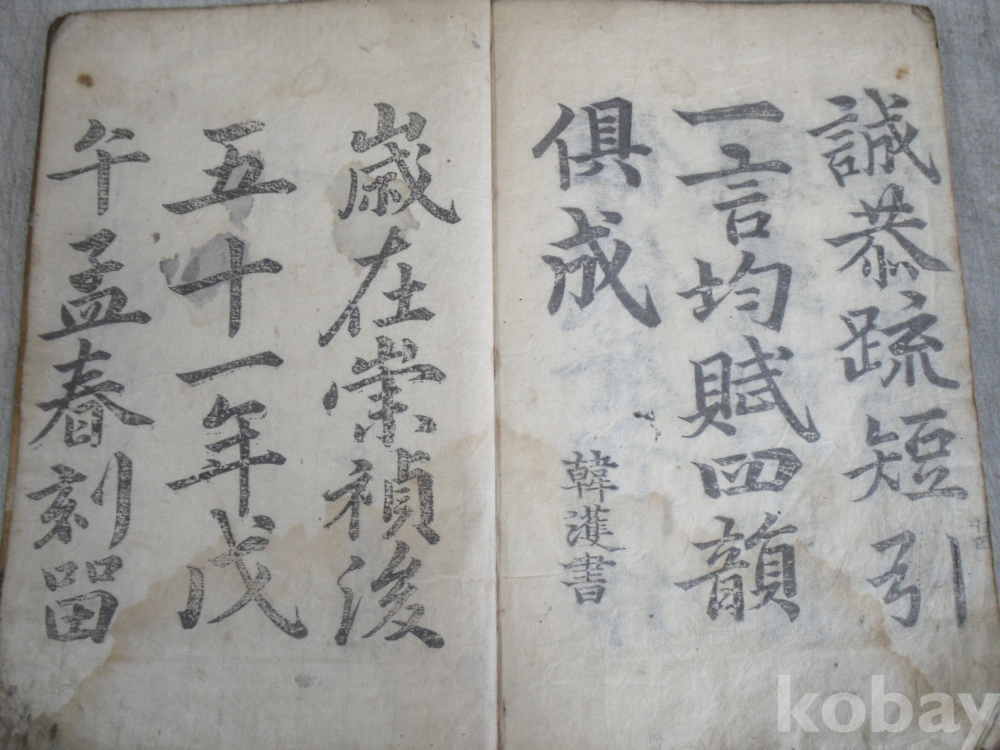 誠恭疏短引
一言均賦四韻
俱成
韓濩書
歲在崇禎後
五十一年戊
午孟春刻畱
kobay